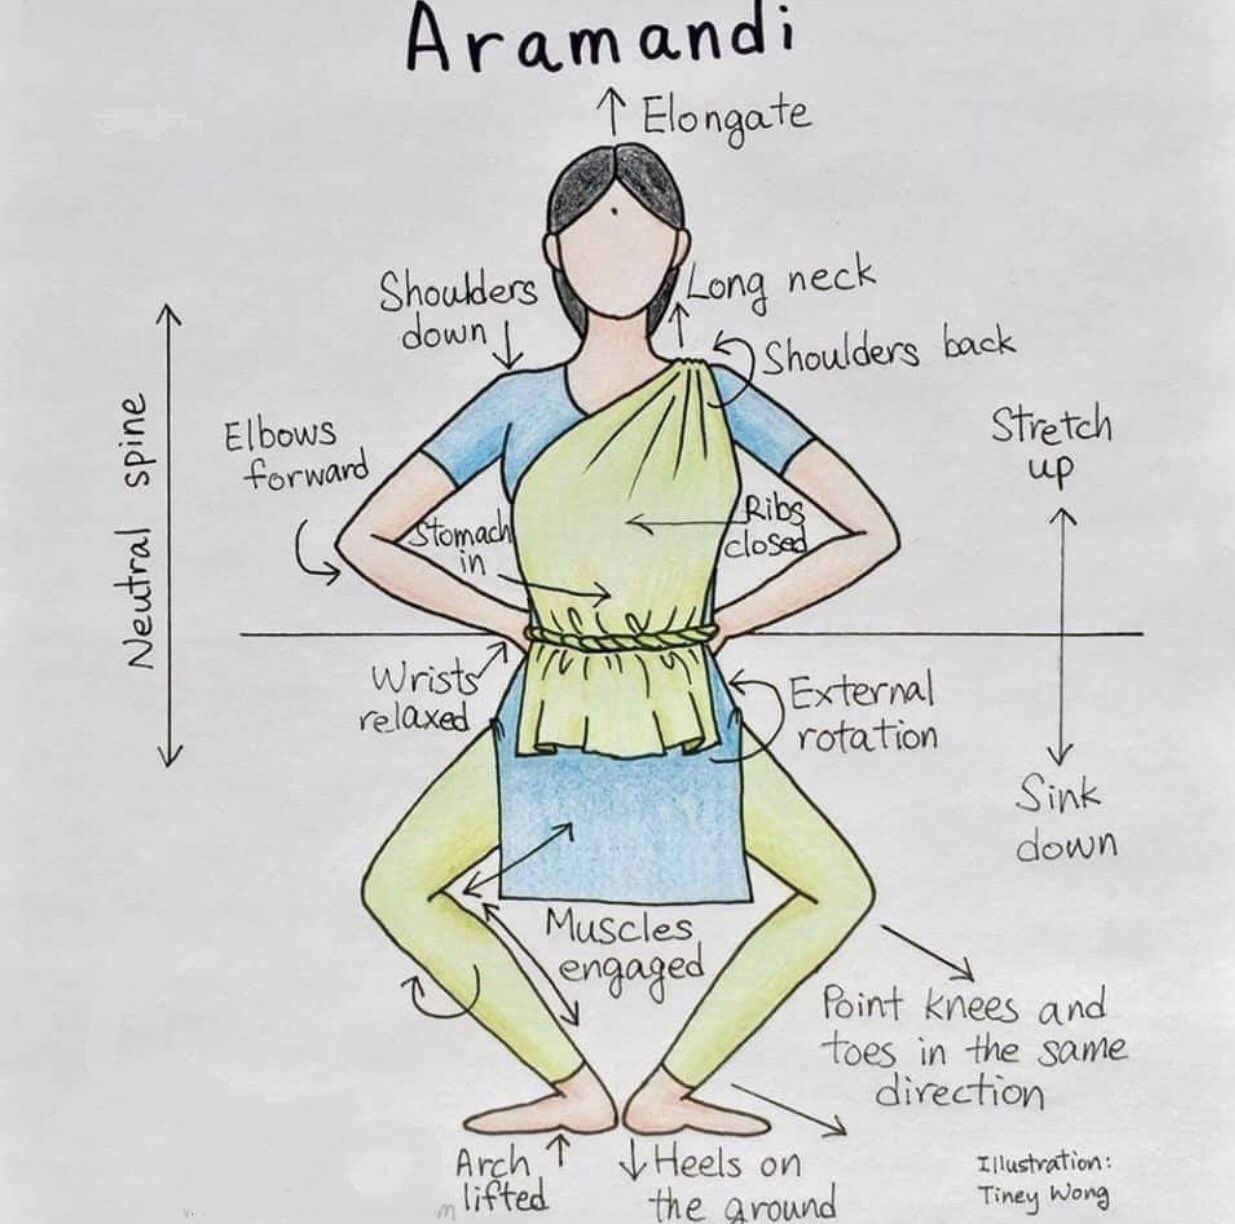 Aramandi
Elongate
Shoulders
down
Long neck
Shoulders back
Elbows
forward
Neutral spine
Stretch
up
Stomach
in
Ribs
closed
Wrists
relaxed
External
rotation
Sink
down
Muscles
engaged
Point knees and
toes in the same
direction
Arch
lifted
Heels on
the ground
Illustration:
Tiney Wong